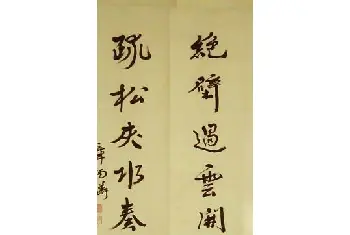 絕壁過雲開
疏松夾水奏